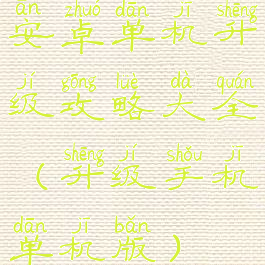 ān zhuó dān jī shēng
安卓单机升
jí gōng lüè dà quán
级攻略大全
shēng jí shǒu jī
（升级手机
dān jī bǎn
单机版）